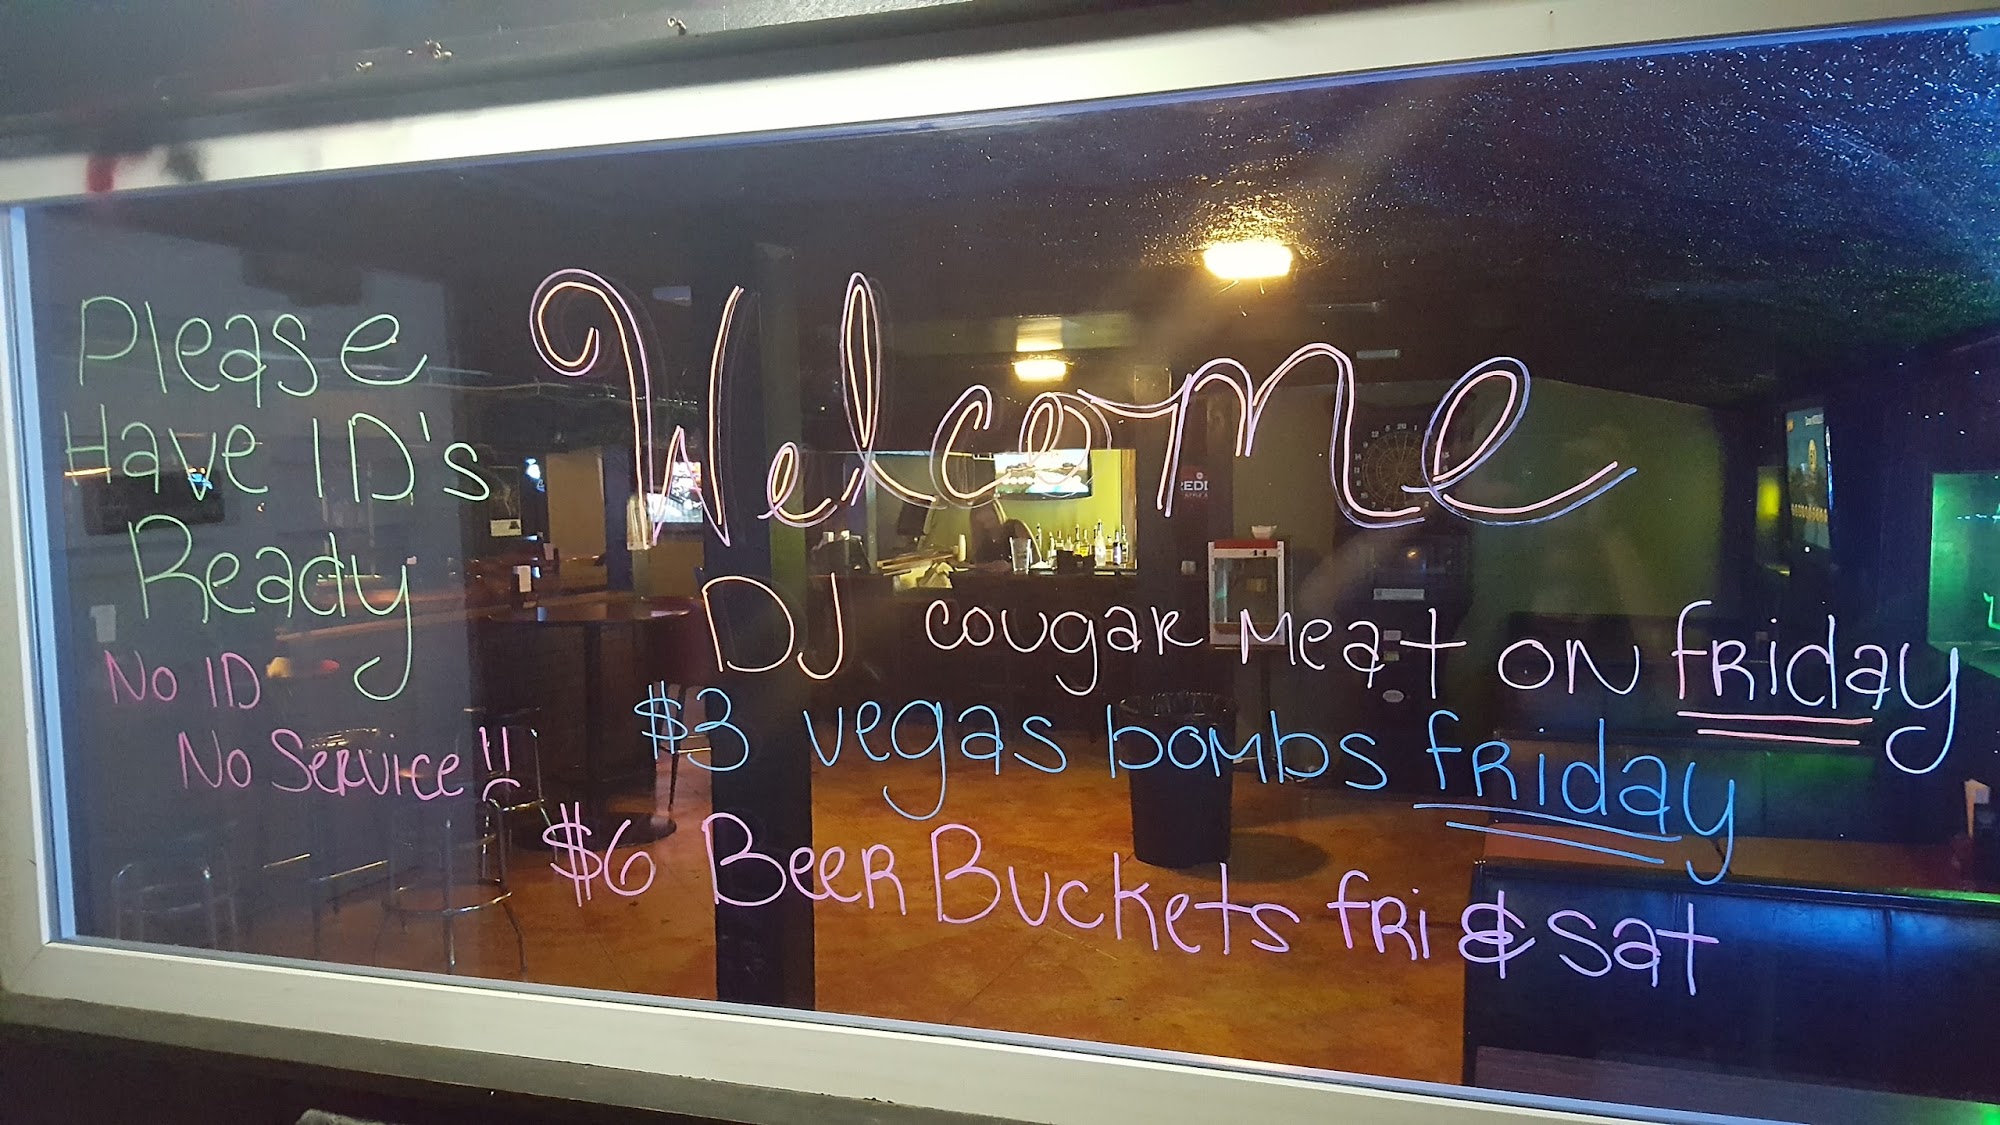 Please
Have ID's
Ready
No ID
No Service!!
Welcome
DJ cougar Meat on friday
$3 vegas bombs friday
$6 Beer Buckets fri & sat